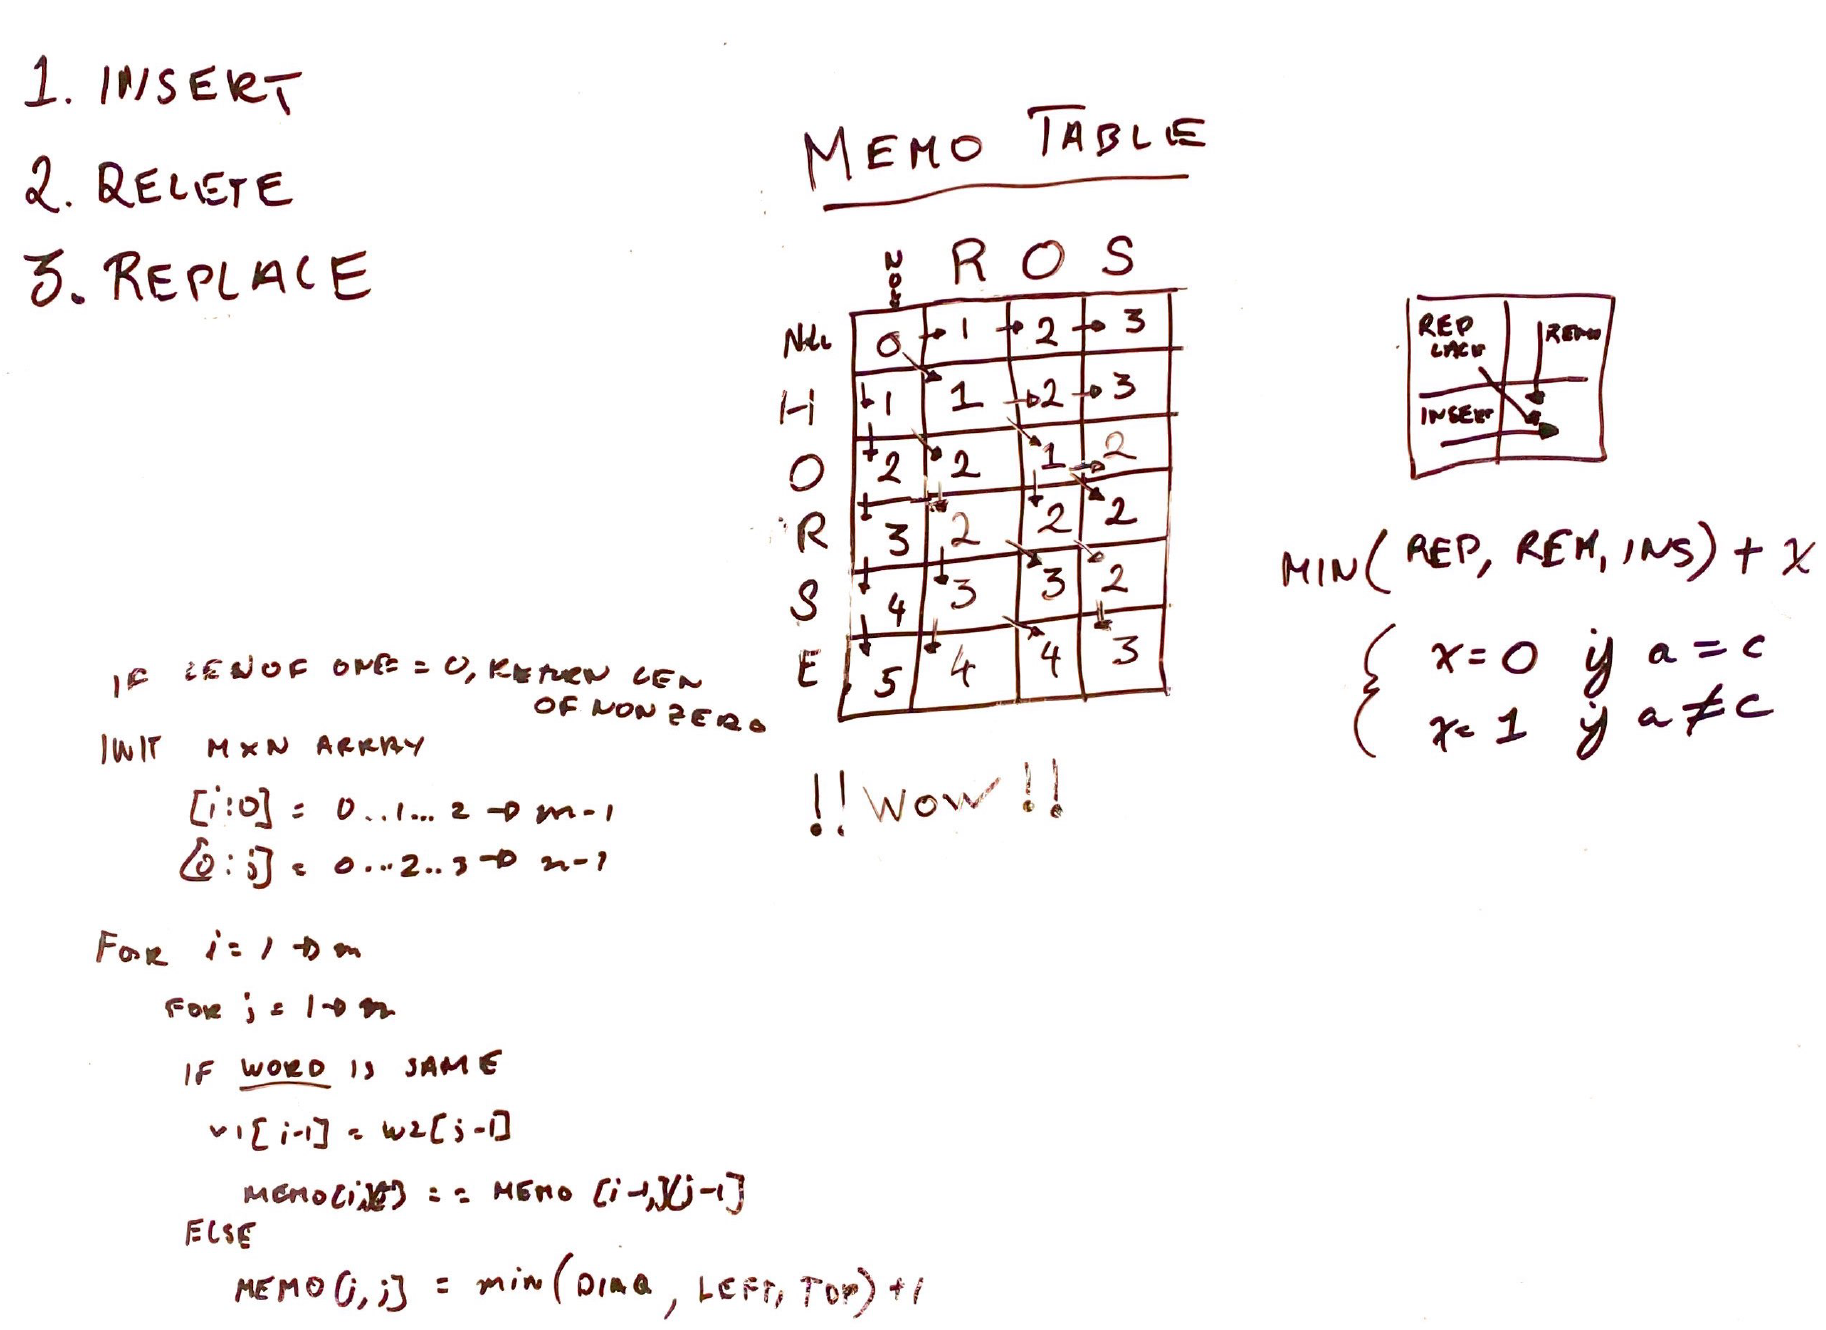 1. INSERT
2. DELETE
3. REPLACE
MEMO TABLE
NULL R O S
NULL 0 1 2 3
H 1 1 2 3
O 2 2 1 2
R 3 2 2 2
S 4 3 3 2
E 5 4 4 3
!! WOW !!
REP
LACE
REMO
INSERT
MIN( REP, REM, INS) + x
x = 0 if a = c
x = 1 if a ≠ c
IF LEN OF ONE = 0, RETURN LEN
OF NON ZERO
INIT M x N ARRAY
[i:0] = 0..1... 2 → m-1
[0:j] = 0...2..3 → n-1
FOR i = 1 → m
FOR j = 1 → n
IF WORD IS SAME
w1[i-1] = w2[j-1]
MEMO[i][j] == MEMO [i-1][j-1]
ELSE
MEMO[i,j] = min(DIAG, LEFT, TOP) +1